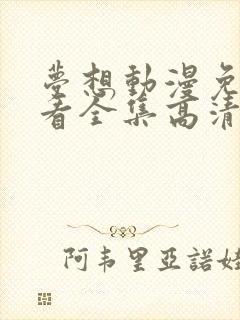 夢想動漫免
看全集高清
阿韦里亞諾娃